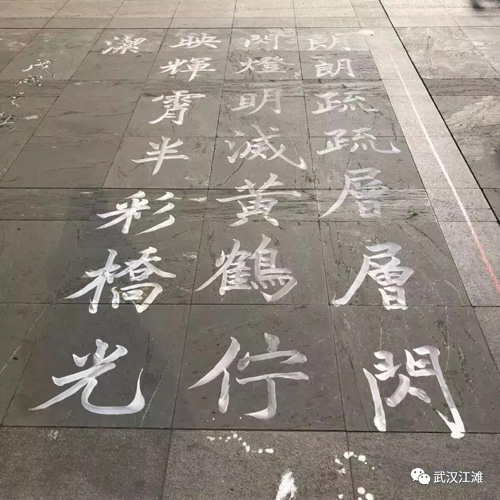 朗朗疏疏層層閃
閃燈明滅黃鶴佇
映輝霄半彩橋光
潔
武汉江滩